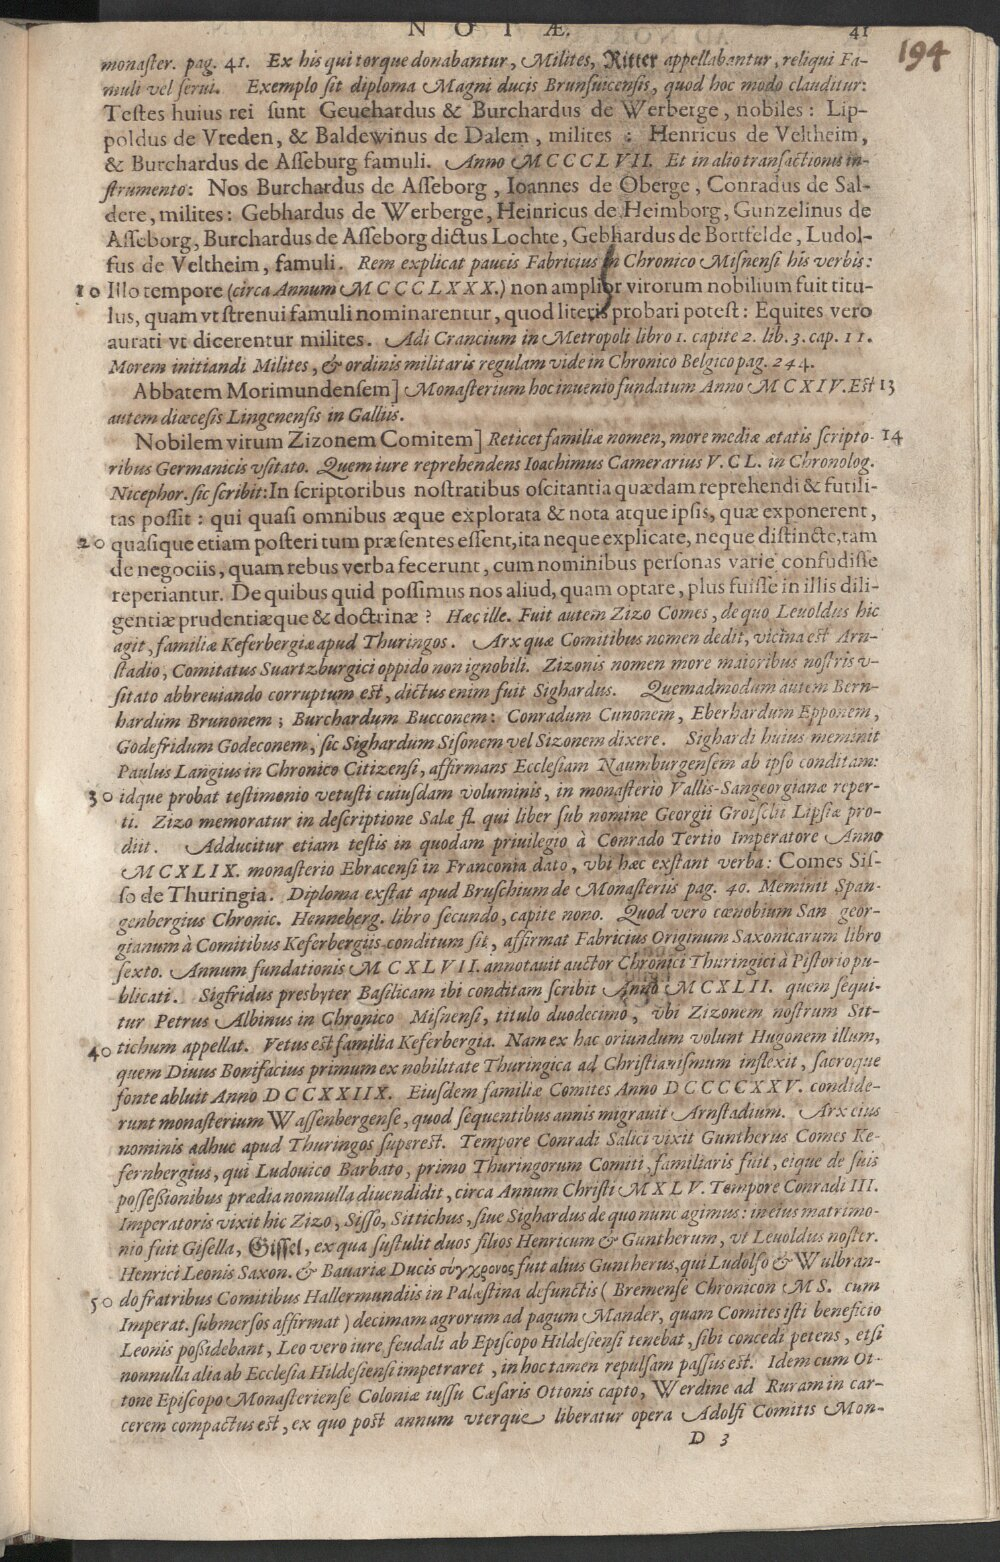 NOTÆ. 41
194
monaster. pag. 41. Ex his qui torque donabantur, Milites, Ritter appellabantur, reliqui Fa-
muli vel serui. Exemplo sit diploma Magni ducis Brunsuicensis, quod hoc modo clauditur:
Testes huius rei sunt Geuehardus & Burchardus de Werberge, nobiles: Lip-
poldus de Vreden, & Baldewinus de Dalem, milites: Henricus de Veltheim,
& Burchardus de Asseburg famuli. Anno MCCCLVII. Et in alio transactionis in-
strumento: Nos Burchardus de Asseborg, Ioannes de Oberge, Conradus de Sal-
dere, milites: Gebhardus de Werberge, Heinricus de Heimborg, Gunzelinus de
Asseborg, Burchardus de Asseborg dictus Lochte, Gebhardus de Bortfelde, Ludol-
fus de Veltheim, famuli. Rem explicat paucis Fabricius in Chronico Misnensi his verbis:
10 Illo tempore (circa Annum MCCCCLXXX.) non amplior virorum nobilium fuit titu-
lus, quam vt strenui famuli nominarentur, quod literis probari potest: Equites vero
aurati vt dicerentur milites. Adi Crancium in Metropoli libro 1. capite 2. lib. 3. cap. 11.
Morem initiandi Milites, & ordinis militaris regulam vide in Chronico Belgico pag. 244.
Abbatem Morimundensem] Monasterium hoc inuenio fundatum Anno MCXIV. Est 13
autem diœcesis Lingenensis in Galliis.
Nobilem virum Zizonem Comitem] Reticet familiæ nomen, more mediæ ætatis scripto- 14
ribus Germanicis vsitato. Quem iure reprehendens Ioachimus Camerarius V. CL. in Chronolog.
Nicephor. sic scribit: In scriptoribus nostratibus oscitantia quædam reprehendi & futili-
tas possit: qui quasi omnibus æque explorata & nota atque ipsis, quæ exponerent,
20 quasique etiam posteri tum præsentes essent, ita neque explicate, neque distincte, tam
de negociis, quam rebus verba fecerunt, cum nominibus personas varie confudisse
reperiantur. De quibus quid possimus nos aliud, quam optare, plus fuisse in illis dili-
gentiæ prudentiæque & doctrinæ? Hæc ille. Fuit autem Zizo Comes, de quo Leuoldus hic
agit, familiæ Keferbergiæ apud Thuringos. Arx quæ Comitibus nomen dedit, vicina est Arn-
stadio, Comitatus Suartzburgici oppido non ignobili. Zizonis nomen more maioribus nostris v-
sitato abbreuiando corruptum est, dictus enim fuit Sighardus. Quemadmodum autem Bern-
hardum Brunonem; Burchardum Bucconem: Conradum Cunonem, Eberhardum Epponem,
Godefridum Godeconem, sic Sighardum Sisonem vel Sizonem dixere. Sighardi huius meminit
Paulus Langius in Chronico Citizensi, affirmans Ecclesiam Naumburgensem ab ipso conditam:
30 idque probat testimonio vetusti cuiusdam voluminis, in monasterio Vallis-Sangeorgianæ reper-
ti. Zizo memoratur in descriptione Salæ fl. qui liber sub nomine Georgii Groischii Lipsiæ pro-
diit. Adducitur etiam testis in quodam priuilegio à Conrado Tertio Imperatore Anno
MCXLIX. monasterio Ebracensi in Franconia dato, vbi hæc exstant verba: Comes Sis-
so de Thuringia. Diploma exstat apud Bruschium de Monasteriis pag. 40. Meminit Span-
genbergius Chronic. Henneberg. libro secundo, capite nono. Quod vero cœnobium San geor-
gianum à Comitibus Keferbergiis conditum sit, affirmat Fabricius Originum Saxonicarum libro
sexto. Annum fundationis MCXLVII. annotauit auctor Chronici Thuringici à Pistorio pu-
blicati. Sigfridus presbyter Basilicam ibi conditam scribit Anno MCXLII. quem sequi-
tur Petrus Albinus in Chronico Misnensi, titulo duodecimo, vbi Zizonem nostrum Sit-
40 tichum appellat. Vetus est familia Keferbergia. Nam ex hac oriundum volunt Hugonem illum,
quem Diuus Bonifacius primum ex nobilitate Thuringica ad Christianismum inflexit, sacroque
fonte abluit Anno DCCXXIIX. Eiusdem familiæ Comites Anno DCCCCXXV. condide-
runt monasterium Wassenbergense, quod sequentibus annis migrauit Arnstadium. Arx eius
nominis adhuc apud Thuringos superest. Tempore Conradi Salici vixit Guntherus Comes Ke-
fernbergius, qui Ludouico Barbato, primo Thuringorum Comiti, familiaris fuit, eique de suis
possessionibus prædia nonnulla diuendidit, circa Annum Christi MXLV. Tempore Conradi III.
Imperatoris vixit hic Zizo, Sisso, Sittichus, siue Sighardus de quo nunc agimus: in eius matrimo-
nio fuit Gisella, Gissel, ex qua sustulit duos filios Henricum & Guntherum, vt Leuoldus noster.
Henrici Leonis Saxon. & Bauariæ Ducis σύγχρονος fuit alius Guntherus, qui Ludolfo & Wulbran-
50 do fratribus Comitibus Hallermundiis in Palæstina defunctis (Bremense Chronicon MS. cum
Imperat. submersos affirmat) decimam agrorum ad pagum Mander, quam Comites isti beneficio
Leonis possidebant, Leo vero iure feudali ab Episcopo Hildesiensi tenebat, sibi concedi petens, etsi
nonnulla alia ab Ecclesia Hildesiensi impetraret, in hoc tamen repulsam passus est. Idem cum Ot-
tone Episcopo Monasteriense Coloniæ iussu Cæsaris Ottonis capto, Werdine ad Ruram in car-
cerem compactus est, ex quo post annum vterque liberatur opera Adolfi Comitis Mon-
D 3